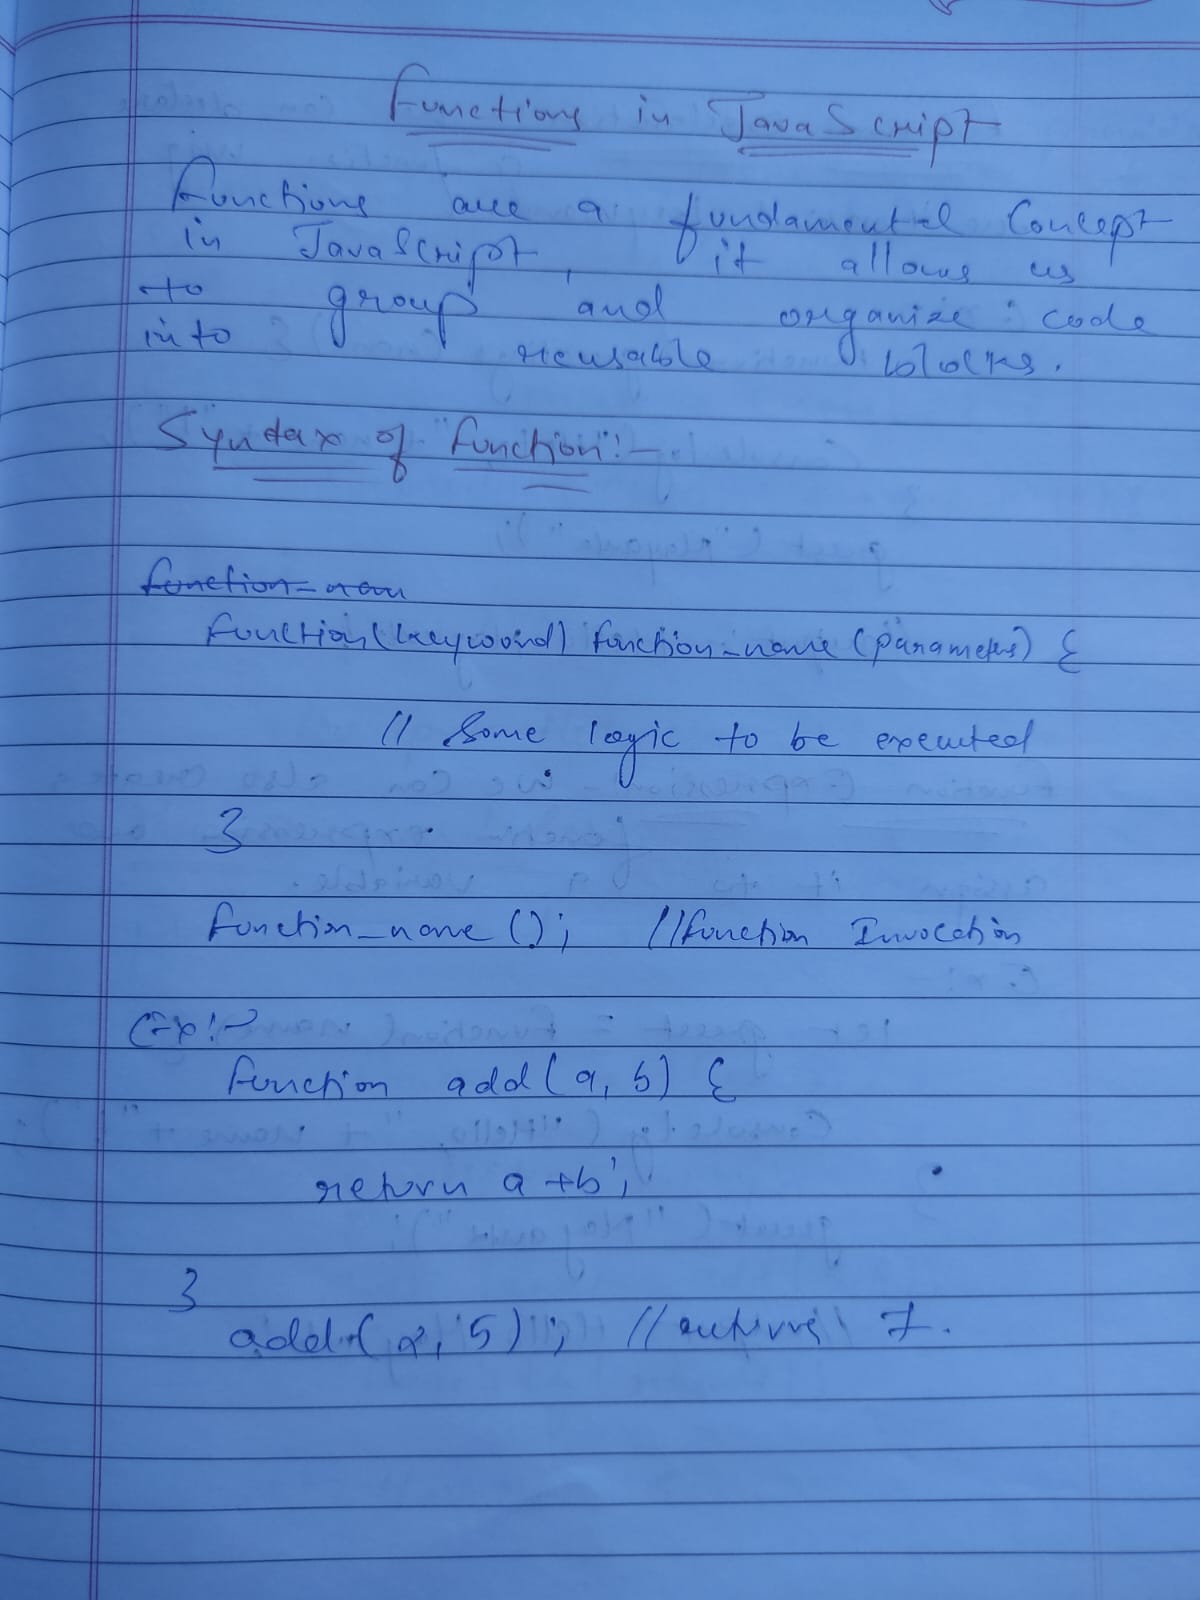 Functions in JavaScript
Functions are a fundamental Concept
in JavaScript, it allows us
to group and organize code
into reusable blocks.
Syntax of "function":-
function_nam
function(keyword) function_name (parameters) {
// Some logic to be executed
}
function_name (); //function Invocation
Ex:-
function add(a, b) {
return a+b;
}
add(2, 5); //returns 7.